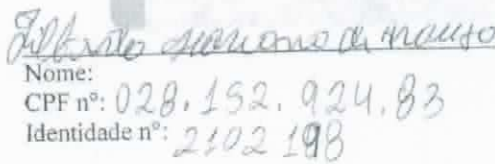 mariano de
Nome:
CPF nº: 028.152.924.83
Identidade nº: 2102198